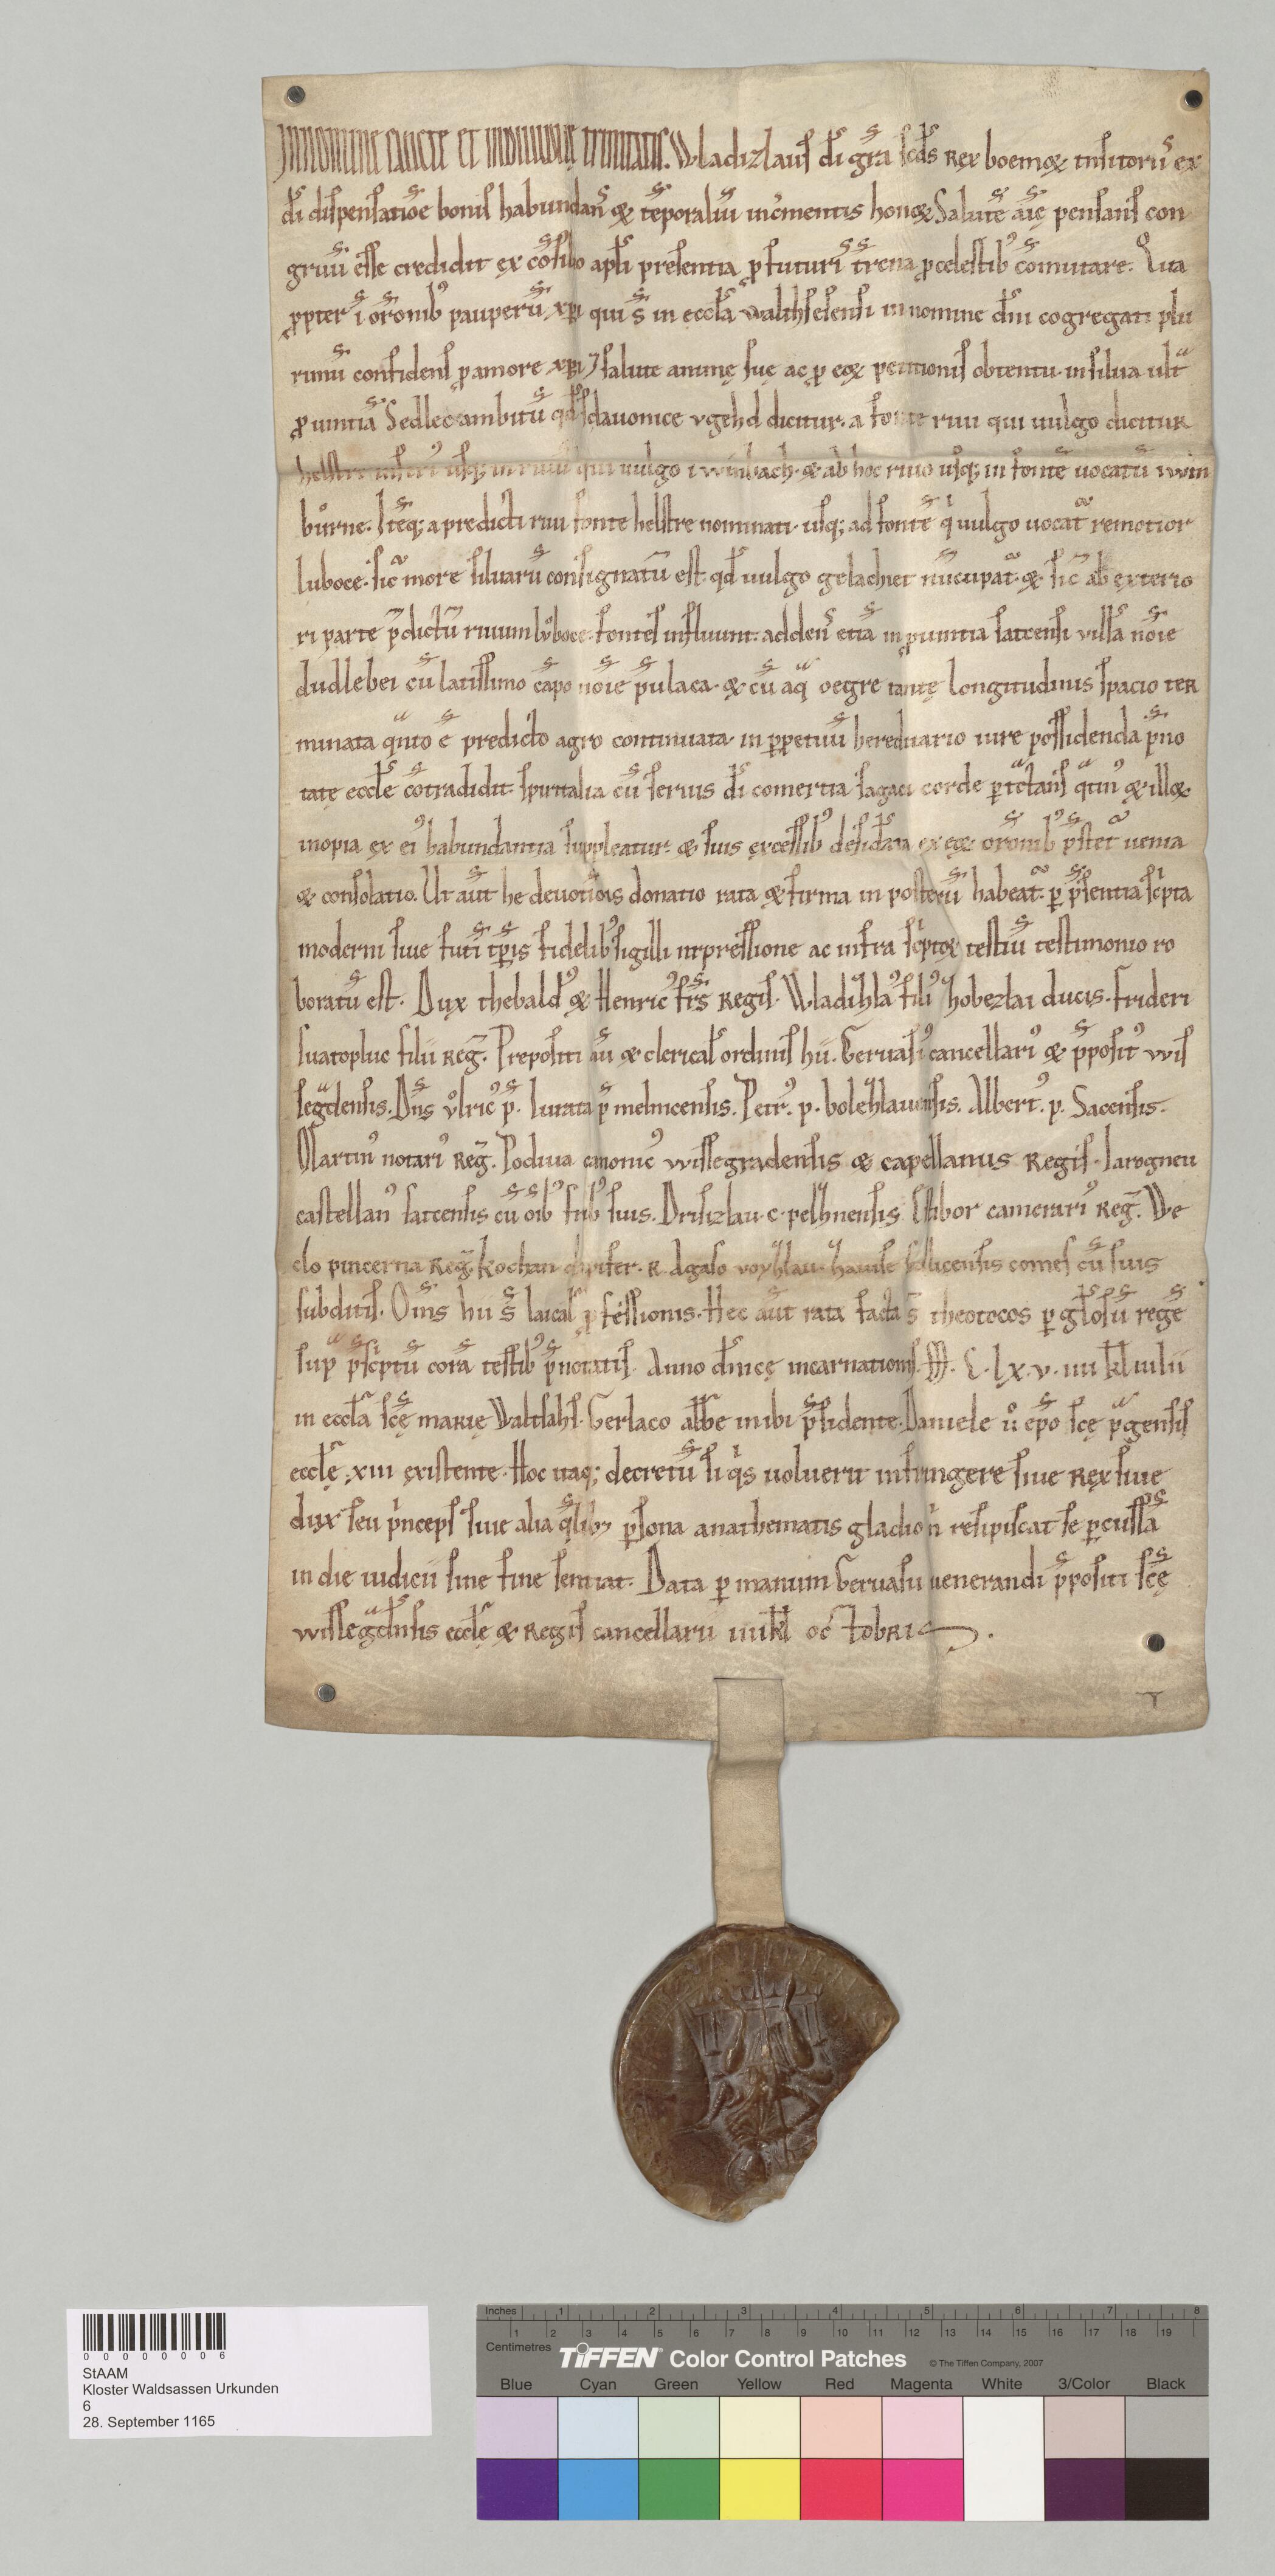 In nomine sancte et indiuiduę trinitatis. Wladizlauſ dī grā ſcds Rex boemoꝝ tnſitoriū ex
dī diſpenſatiōe boniſ habundanſ & tēporaliū incrmentis honoꝝ Salutē aīę penſanſ con
gruū eſſe credidit ex cōſilio apli preſentia ꝓ futuriſ trena ꝓ celeſtibꝰ comutare. Qua
ꝓpter ī orōnibꝰ pauperū xp̄i qui s̄ in eccla Walthſeſenſi in nomine dn̄i cogregati plu
rimū confidenſ ꝓ amore xp̄i ⁊ ſalute animę ſuę ac ꝓ eoꝝ petitioniſ obtentu. in ſilua ult
ꝓuintiā Sedlec ambitū qd ſclauonice vgehd dicitur. a fonte riui qui uulgo dicitur
helſtre inferiꝰ uſq; in riuū qui uulgo i winbach. & ab hoc riuo uſq; in fontē uocatū wwin
buͦrne. Itēq; a predicti riui fonte helſtre nominati. uſq; ad fontē qi uulgo uocat remotior
luboce. ſic more ſiluarū conſignatū eſt. qd uulgo gelachiet nūcupat. & ſic ab exterio
ri parte p̄dictū riuum luͦboce. fonteſ influunt. addenſ etiā in ꝓuintia ſatcenſi villā nōie
dudlebei cū latiſſimo cāpo nōie p̄ulaca. & cū aq̄ oegre tantę longitudinis ſpacio ter
minata qnto ē predicto agro continuata. in ꝑpetuū hereditario iure poſſidenda p̄no
tatę eccle cōtradidit. ſpiritalia cū ſeruis dī comertia ſagaci corde ꝑtctanſ qtinꝰ & illoꝝ
inopia ex eiꝰ habundantia ſuppleatur. & ſuis exceſſibꝰ deſidata ex eoꝝ orōnibꝰ p̄ſtet uenia
& conſolatio. Ut aūt he deuotiōis donatio rata & firma in poſterū habeat. ꝑ p̄ſentia ſcpta
moderni ſiue futi tꝑis fidelibꝰ ſigilli inpreſſione ac infra ſcptoꝝ teſtiū teſtimonio ro
boratū eſt. Dux thebaldꝰ & Henricꝰ frs regiſ. Wladihlaꝰ filiꝰ hobezlai ducis. frideri
ſuatopluc filii Reg̅. Prepoſiti aū & clericalꝰ ordiniſ hii. Geruaſiꝰ cancellariꝰ & p̄poſitꝰ wiſ
ſegdenſis. Dn̄s vͦlricꝰ p̄. Iurata p̄ melnicenſis. Petrꝰ. p. boleyhlauenſis. Albertꝰ. p. Sacenſis.
Martinꝰ notariꝰ Reg̅. Podiua canonicꝰ wiſſegradenſis & capellanus Regiſ. Iarogneu
caſtellanꝰ ſatcenſis cū oībꝰ ſubꝰ ſuis. Driſizlau. c. pelyhnenſis Eſtibor camerariꝰ Reg̅. De
clo pincerna Reg̅. kochan dapifer. R. dgaſo voyhlau. hauiſe ſedlicenſis comeſ cū ſuis
ſubditiſ. Om̄s hii s̄ laicalſ ꝓfeſſionis. Hec aūt rata facta s̄ theotocos ꝑ glōſū regē
ſup p̄ſcptū corā teſtibꝰ p̄notatiſ. Anno dn̄icę incarnationiſ. M. C. lx. v. iiii kl iulii
in eccla ſcę marię Waltſahſ. Gerlaco abbe inibi p̄ſidente. Daniele uͦ epo ſcę pgenſiſ
ecclę. xiii exiſtente. Hoc itaq; decretū ſi qs uoluerit infringere ſiue Rex ſiue
dux ſeu pnceps ſiue alia qlibꝫ ꝑſona anathematis gladio ni reſipiſcat ſe ꝑcuſſā
in die iudicii ſine fine ſentiat. Data ꝑ manum Geruaſii uenerandi p̄poſiti ſcę
wiſſegdnſis ecclę & Regiſ cancellarii iiii kl octobris.
0 0 0 0 0 0 0 6
StAAM
Kloster Waldsassen Urkunden
6
28. September 1165
Inches 1 2 3 4 5 6 7 8
Centimetres 1 2 3 4 5 6 7 8 9 10 11 12 13 14 15 16 17 18 19
TIFFEN Color Control Patches © The Tiffen Company, 2007
Blue Cyan Green Yellow Red Magenta White 3/Color Black